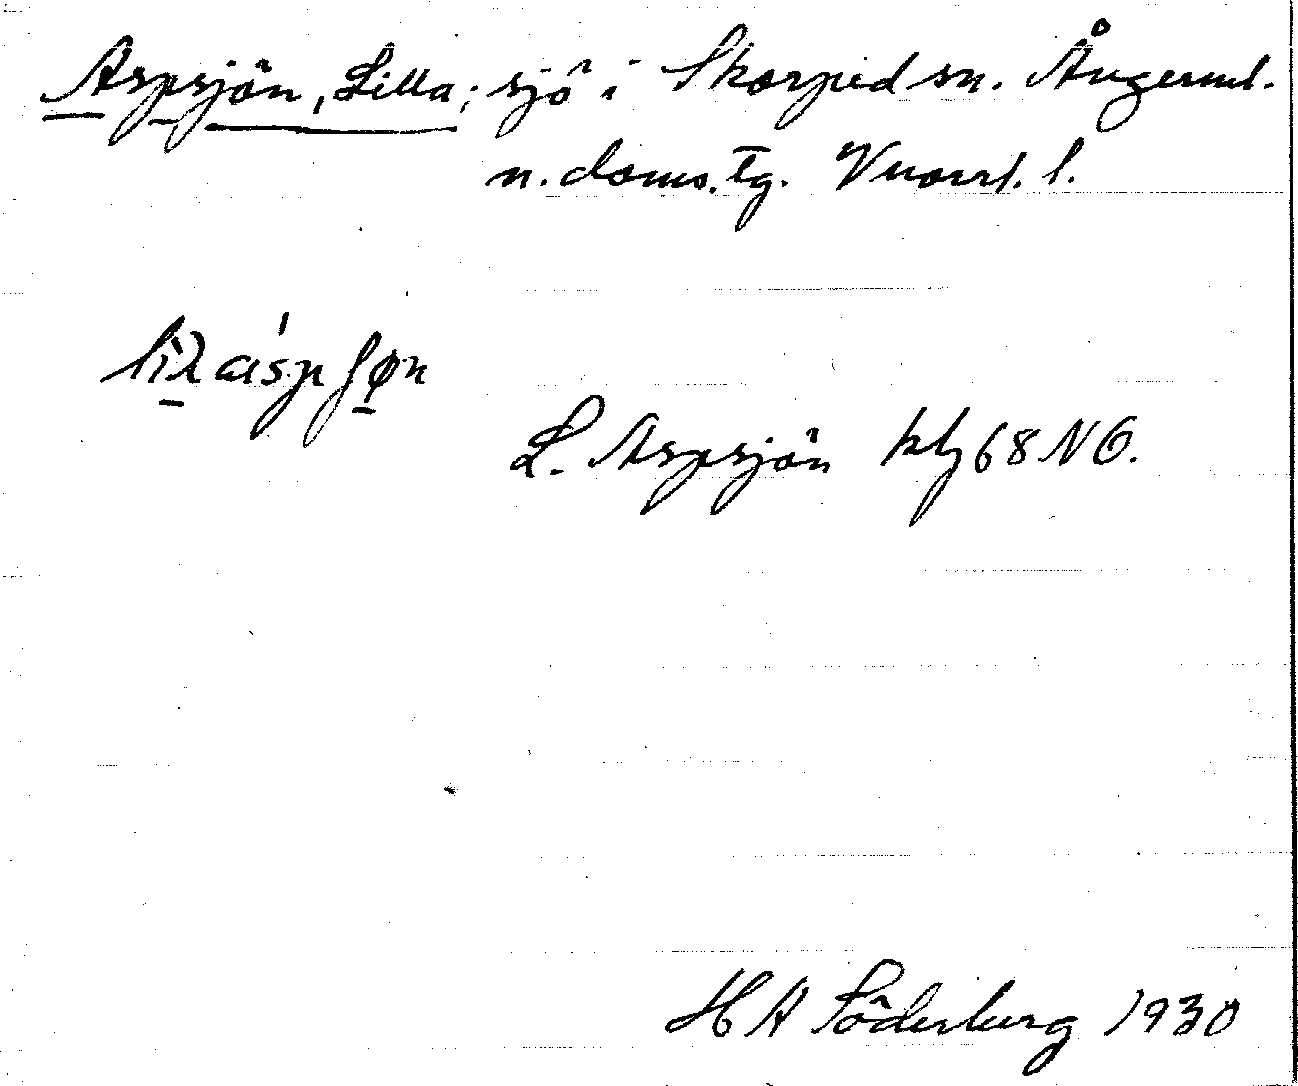 Aspsjön, Lilla; sjö i Skorped sn. Ångerml.
n. doms. tg. Vnorrl. l.
L. Aspsjön kbl 68 NO.
H A Söderberg 1930